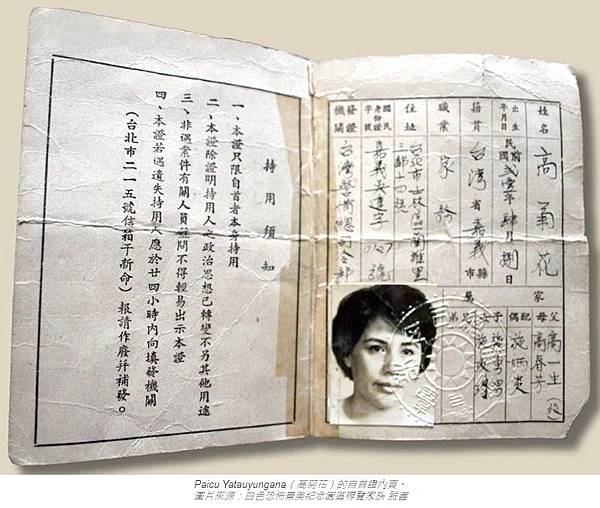 姓名 高菊花
出生年月日 民國前 貳壹年肆月捌日
籍貫 台灣省嘉義縣市
職業 家務
住址 台北市士林區蘭雅里
國民身份證字號 嘉義 字 號
發證機關 台灣警備總司令部
家屬
父 高一生(歿)
母 高春芳
配偶 施炳炎
子女
兄弟
持用須知
一、本證只限自首者本身持用
二、本證除證明持用人之政治思想已轉變不另其他用途
三、非遇案件有關人員 問不得輕易出示本證
四、本證若遇遺失持用人應於廿四小時內向填發機關
(台北市二一五號信箱于新命)報請作廢并補發。
Paicu Yatauyungana(高菊花)的自首證內頁。
圖片來源:白色恐怖景美紀念園區導覽家族 臉書